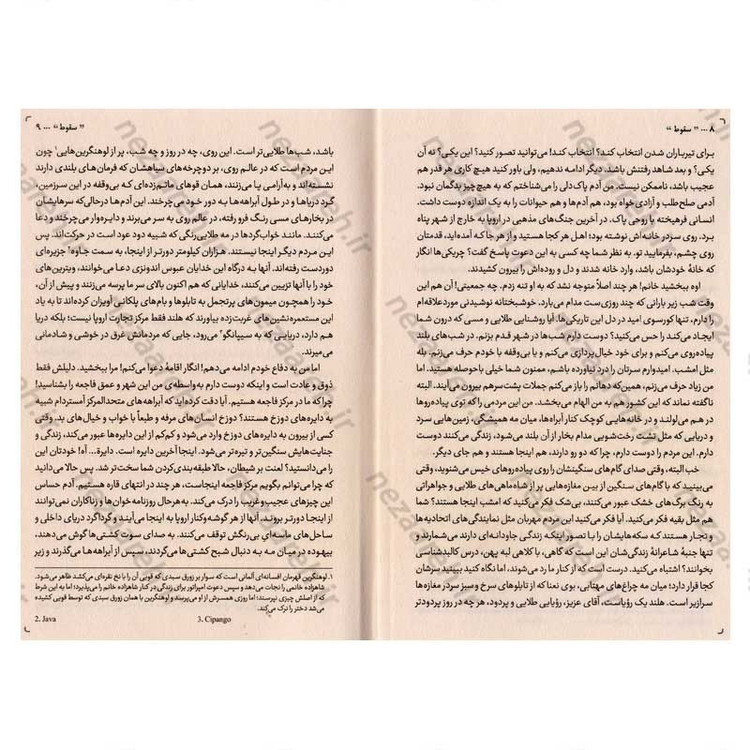 ۸ ... " سقوط "
برای تیرباران شدن انتخاب کند؟ انتخاب کند! می‌توانید تصور کنید؟ این یکی؟ نه آن
یکی؟ و بعد شاهد رفتنش باشد. دیگر ادامه ندهیم، ولی باور کنید هیچ کاری هر قدر هم
عجیب باشد، ناممکن نیست. من آدم پاک‌دلی را می‌شناختم که به هیچ‌چیز بدگمان نبود.
آدمی صلح‌طلب و آزادی‌خواه بود، هم آدم‌ها و هم حیوانات را به یک اندازه دوست داشت.
انسانی فرهیخته با روحی پاک. در آخرین جنگ‌های مذهبی در اروپا به خارج از شهر پناه
برد. روی سردر خانه‌اش نوشته بود: اهل هر کجا هستید و از هر جا که آمده‌اید، قدمتان
روی چشم، بفرمایید تو. به نظر شما چه کسی به این دعوت پاسخ گفت؟ چریکی‌ها انگار
که خانهٔ خودشان باشد، وارد خانه شدند و دل و روده‌اش را بیرون کشیدند.
اوه ببخشید خانم! هر چند اصلاً متوجه نشد که به او تنه زدم. چه جمعیتی! آن هم این
وقت شب زیر بارانی که چند روزی‌ست مدام می‌بارد. خوشبختانه نوشیدنی موردعلاقه‌ام
را دارم، تنها کورسوی امید در دل این تاریکی‌ها. آیا روشنایی طلایی و مسی که درون شما
ایجاد می‌کند را حس می‌کنید؟ دوست دارم شب‌ها در شهر قدم بزنم. در شب‌های بلند
پیاده‌روی می‌کنم و برای خود خیال‌پردازی می‌کنم و یا بی‌وقفه با خودم حرف می‌زنم. بله
مثل امشب. امیدوارم سرتان را درد نیاورده باشم، ممنون شما خیلی باحوصله هستید. اما
من زیاد حرف می‌زنم، همین‌که دهانم را باز می‌کنم جملات پشت‌سرهم بیرون می‌آیند. البته
ناگفته نماند که این کشور هم به من الهام می‌بخشد. من این مردمی را که توی پیاده‌روها
در هم می‌لولند و در خانه‌هایی کوچک کنار آبراه‌ها، میان مه همیشگی، زمین‌هایی سرد
و دریایی که مثل تشت رخت‌شویی مدام بخار از آن بلند می‌شود، زندگی می‌کنند دوست
دارم. این مردم را دوست دارم، چرا که دو رو دارند، هم اینجا هستند و هم جای دیگر.
خب البته، وقتی صدای گام‌های سنگینشان را روی پیاده‌روهای خیس می‌شنوید، وقتی
می‌بینید که با گام‌های سنگین از بین مغازه‌هایی پر از شاه‌ماهی‌های طلایی و جواهراتی
به رنگ برگ‌های خشک عبور می‌کنند، بی‌شک فکر می‌کنید که امشب اینجا هستند؟ شما
هم مثل بقیه فکر می‌کنید. آیا فکر می‌کنید این مردم مهربان مثل نمایندگی‌های اتحادیه‌ها
و تجار هستند که سکه‌هایشان را با تصور اینکه زندگی جاودانه‌ای دارند می‌شمارند و
تنها جنبهٔ شاعرانهٔ زندگی‌شان این است که گاهی، با کلاهی لبه پهن، درس کالبدشناسی
بخوانند؟ اشتباه می‌کنید. درست است که از کنار ما رد می‌شوند، اما نگاه کنید ببینید سرشان
کجا قرار دارد؛ میان مه چراغ‌های مهتابی، بوی نعنا که از تابلوهای سرخ و سبز سردر مغازه‌ها
سرازیر است. هلند یک رؤیاست، آقای عزیز، رؤیایی طلایی و پردود، هر چه در روز پردودتر
" سقوط " ... ۹
باشد، شب‌ها طلایی‌تر است. این روی، چه در روز و چه شب، پر از لوهنگرین‌هایی۱ چون
این مردم است که در عالم روی، بر دوچرخه‌های سیاهشان که فرمان‌های بلندی دارند
نشسته‌اند و به‌آرامی پا می‌زنند، همان قوهای ماتم‌زده‌ای که بی‌وقفه در این سرزمین،
گرد دریاها و در طول آبراهه‌ها به دور خود می‌چرخند. این آدم‌ها درحالی‌که سرهایشان
در بخارهای مسی رنگ فرو رفته، در عالم روی به سر می‌برند و دایره‌وار می‌چرخند و دعا
می‌کنند. مانند خواب‌گردها در مه طلایی‌رنگی که شبیه دود عود است در حرکت‌اند. پس
این مردم دیگر اینجا نیستند. هزاران کیلومتر دورتر از اینجا، به سمت جاوه۲ جزیره‌ای
دوردست رفته‌اند. آنها به درگاه این خدایان عبوس اندونزی دعا می‌خوانند، ویترین‌های
خود را با آنها تزیین می‌کنند، خدایانی که هم اکنون بالای سر ما پرسه می‌زنند و پیش از آن،
خود را همچون میمون‌های پرتجمل به تابلوها و بام‌های پلکانی آویزان کرده‌اند تا به یاد
این مستعمره‌نشین‌های غربت‌زده بیاورند که هلند فقط مرکز تجارت اروپا نیست؛ بلکه دریا
هم دارد، دریایی که به سیپانگو۳ می‌رود، جایی که مردمانش غرق در خوشی و شادمانی
می‌میرند.
اما من به دفاع خودم ادامه می‌دهم! انگار اقامهٔ دعوا می‌کنم! مرا ببخشید. دلیلش فقط
ذوق و عادت است و اینکه دوست دارم به‌واسطه‌ی من این شهر و عمق فاجعه را بشناسید!
چرا که ما در مرکز فاجعه هستیم. آیا دقت کرده‌اید که آبراهه‌های متحدالمرکز آمستردام شبیه
به دایره‌های دوزخ هستند؟ دوزخ انسان‌های مرفه و طبعاً با خواب و خیال‌های بد. وقتی
کسی از بیرون به دایره‌های دوزخ وارد می‌شود و کم‌کم از این دایره‌ها عبور می‌کند، زندگی و
جنایت‌هایش سنگین‌تر و تیره‌تر می‌شود. اینجا آخرین دایره است. دایرهٔ... آه! خودتان این
را می‌دانستید؟ لعنت بر شیطان، حالا طبقه‌بندی کردن شما سخت‌تر شد. پس حالا می‌دانید
که چرا می‌توانم بگویم مرکز فاجعه اینجاست، هر چند در انتهای قاره هستیم. آدم حساس
این چیزهای عجیب‌وغریب را درک می‌کند. به‌هرحال روزنامه خوان‌ها و زناکاران نمی‌توانند
از اینجا دورتر بروند. آنها از هر گوشه‌وکنار اروپا به اینجا می‌آیند و گرداگرد دریای داخلی و
ساحل‌های ماسه‌ای بی‌رنگش توقف می‌کنند. به صدای سوت کشتی‌ها گوش می‌دهند،
بیهوده در میان مه به دنبال شبح کشتی‌ها می‌گردند، سپس از آبراهه‌ها می‌گذرند و زیر
۱. لوهنگرین قهرمان افسانه‌ای آلمانی است که سوار بر زورق سبدی که قویی آن را با نخ نقره‌ای می‌کشد ظاهر می‌شود.
شاهزاده خانمی را نجات می‌دهد و سپس دعوت امپراتور برای زندگی در کنار شاهزاده خانم را می‌پذیرد؛ اما به این شرط
که از اصلش چیزی نپرسند؛ اما روزی همسرش از او می‌پرسد و لوهنگرین با همان زورق سبدی که توسط قویی کشیده
می‌شد دختر را ترک می‌کند.
2. Java
3. Cipango
nezamieh.ir